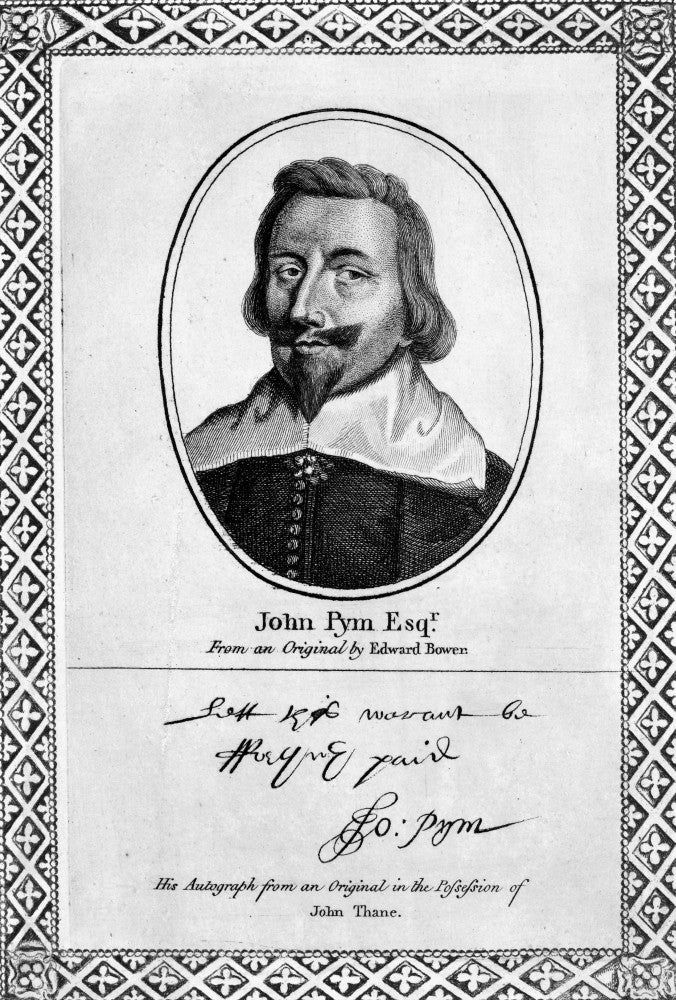 John Pym Esqr.
From an Original by Edward Bower.
Lett this warant be
paid
Jo: Pym
His Autograph from an Original in the Poſseſsion of
John Thane.